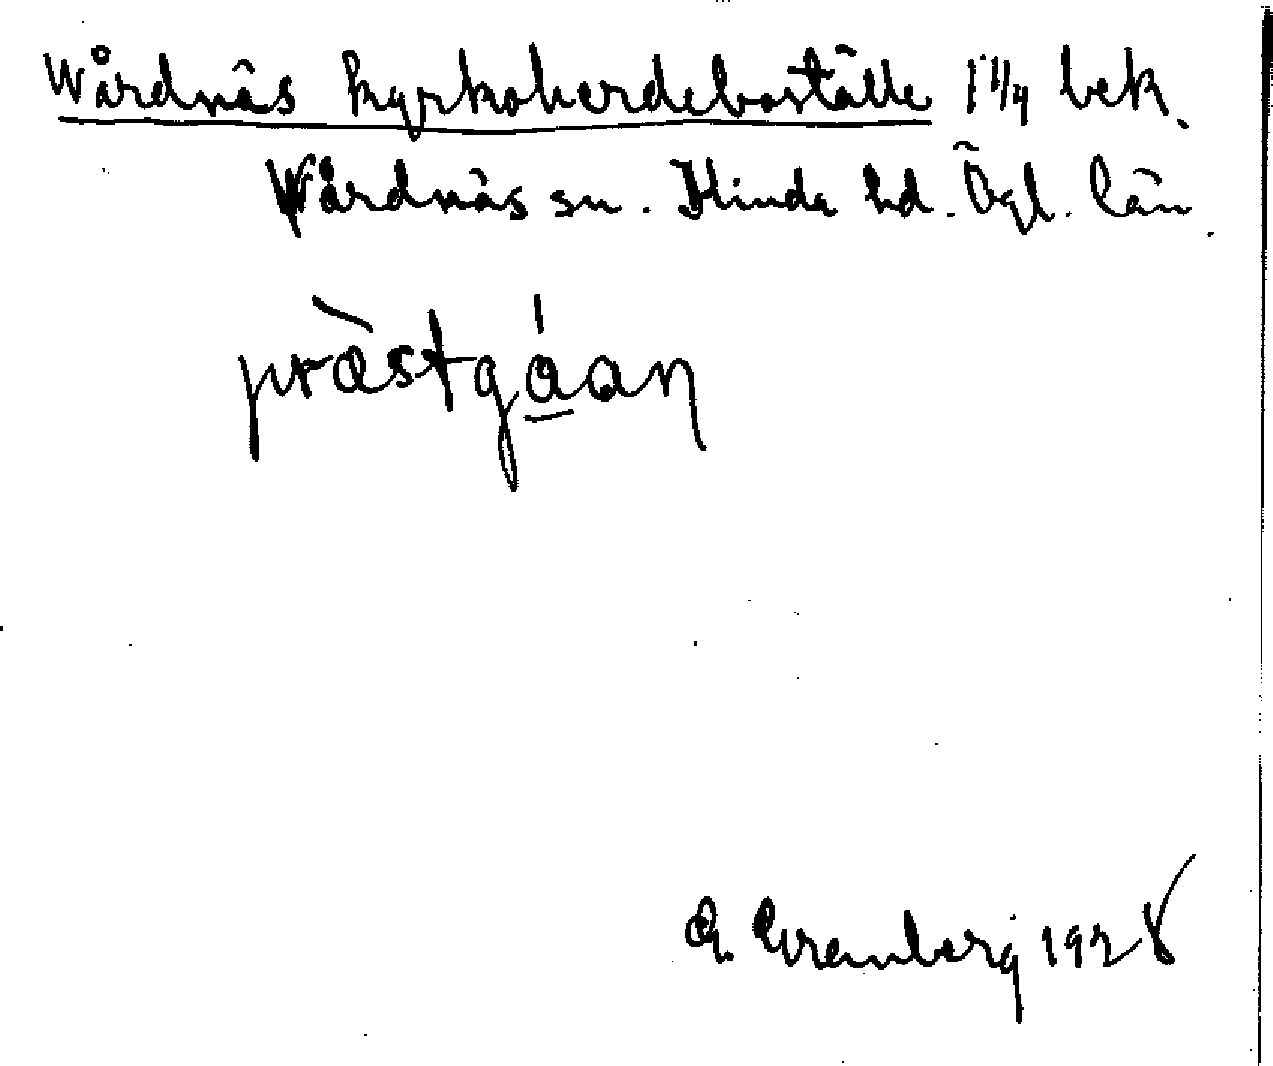 Wårdnäs kyrkoherdeboställe 1 1/4 bek.
Wårdnäs sn. Kinda hd. Ögl. län
prästgáan
1928